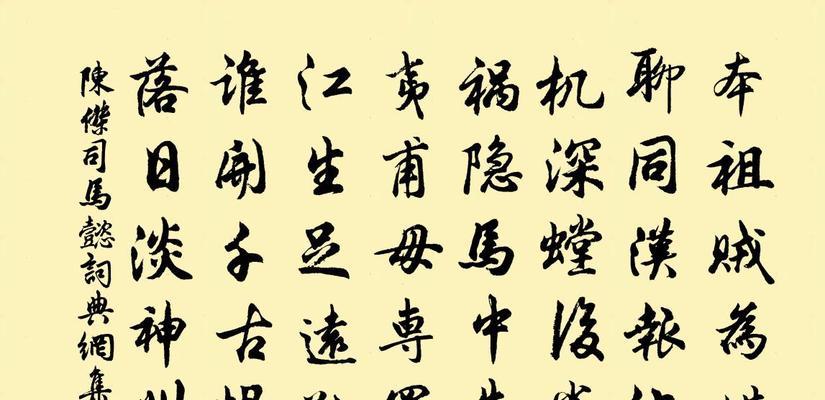 本祖贼為
聊同漢報
机深螳後
祸隐馬中
夷甫毋専
江生足遠
谁開千古
落日淡神
陳傑司馬懿詞典網集